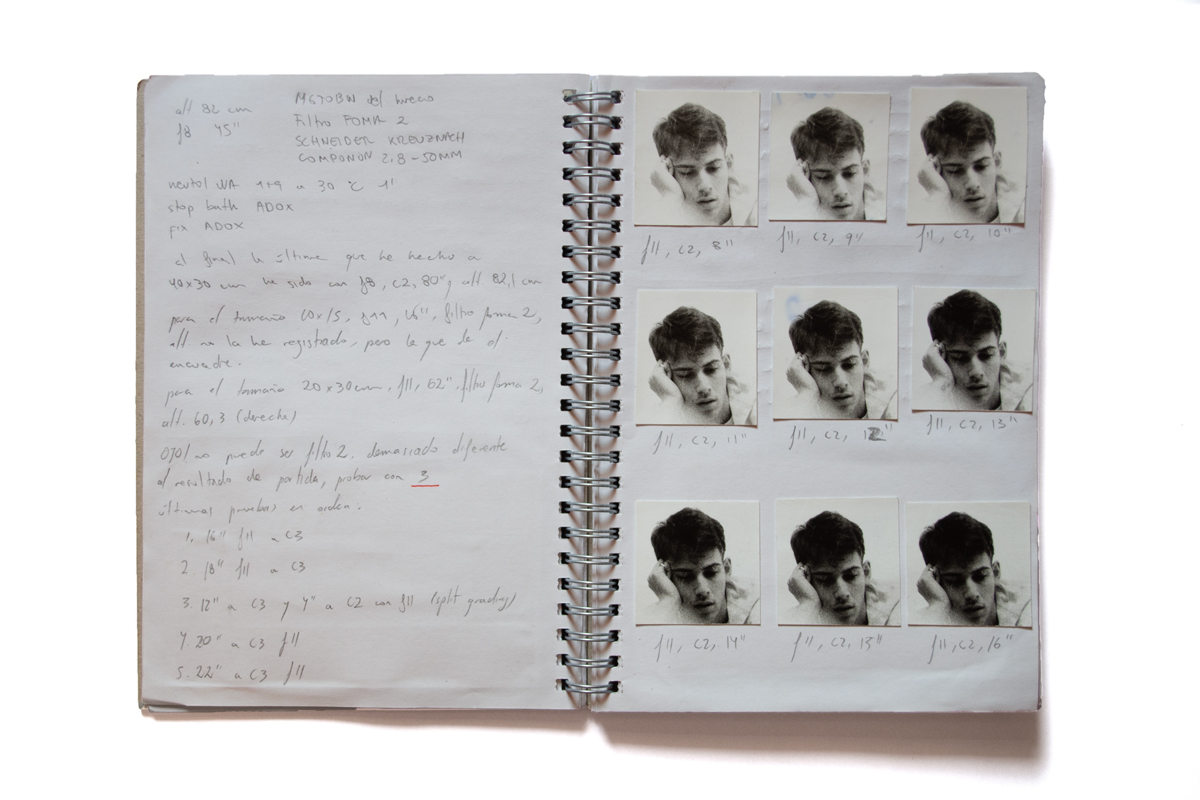 alt 82 cm
f8 45"
MG70BW del
Filtro FOMA 2
SCHNEIDER KREUZNACH
COMPONON 2,8-50MM
neutol WA 1+9 a 30 °C 1'
stop bath ADOX
fix ADOX
al final la última que he hecho a
40x30 cm ha sido con f8, C2, 80", alt. 82,1 cm
para el tamaño 10x15, f11, 16", filtro foma 2,
alt no la he registrado, pero la que de el
encuadre.
para el tamaño 20x30cm, f11, 62", filtro foma 2,
alt. 60,3 (derecha)
OJO! no puede ser filtro 2, demasiado diferente
al resultado de partida, probar con 3
últimas pruebas en orden.
1. 16" f11 a C3
2. 18" f11 a C3
3. 12" a C3 y 4" a C2 con f11 (split grading)
4. 20" a C3 f11
5. 22" a C3 f11
f11, C2, 8"
f11, C2, 9"
f11, C2, 10"
f11, C2, 11"
f11, C2, 12"
f11, C2, 13"
f11, C2, 14"
f11, C2, 15"
f11, C2, 16"